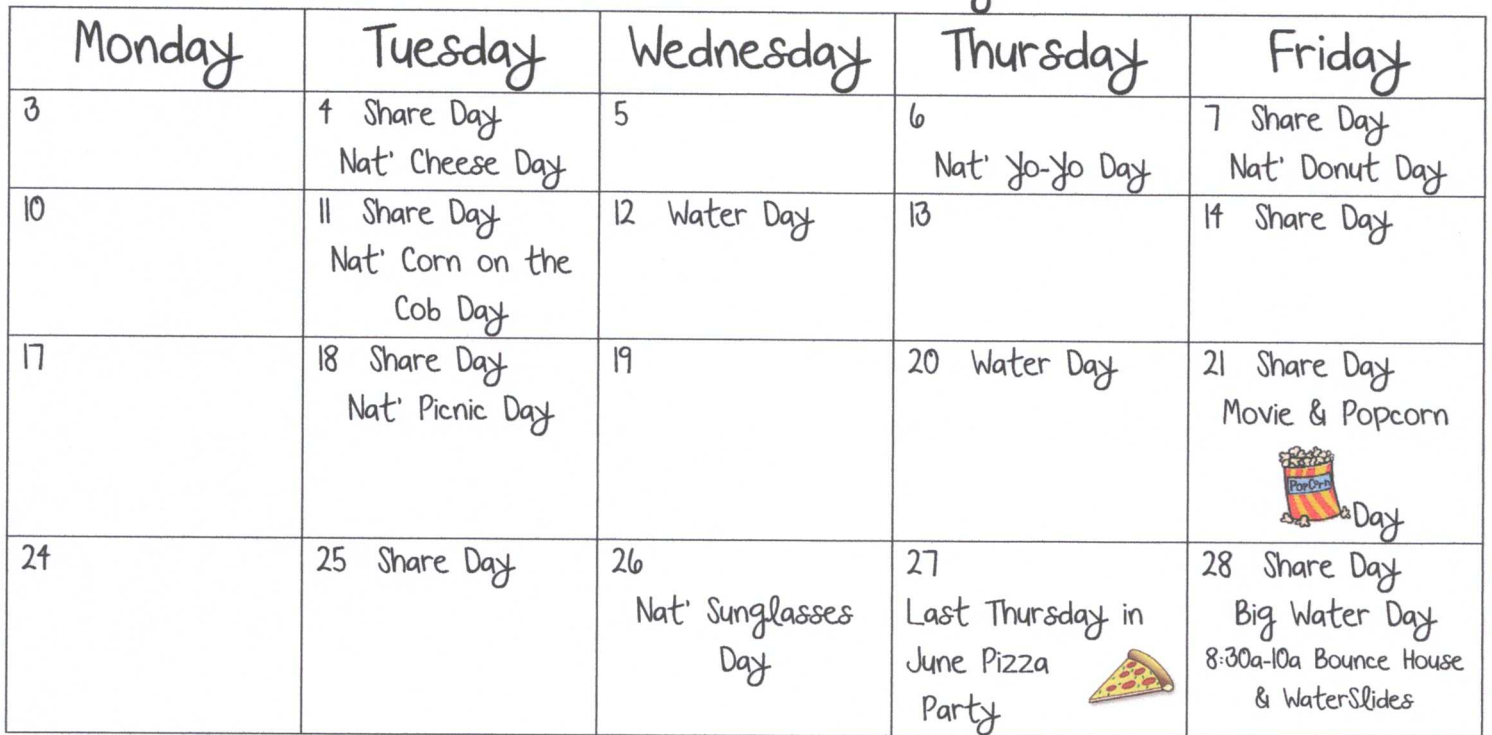 Monday Tuesday Wednesday Thursday Friday
3
4 Share Day
Nat' Cheese Day
5
6
Nat' Yo-Yo Day
7 Share Day
Nat' Donut Day
10
11 Share Day
Nat' Corn on the
Cob Day
12 Water Day
13
14 Share Day
17
18 Share Day
Nat' Picnic Day
19
20 Water Day
21 Share Day
Movie & Popcorn
PopCorn
Day
24
25 Share Day
26
Nat' Sunglasses
Day
27
Last Thursday in
June Pizza
Party
28 Share Day
Big Water Day
8:30a-10a Bounce House
& WaterSlides